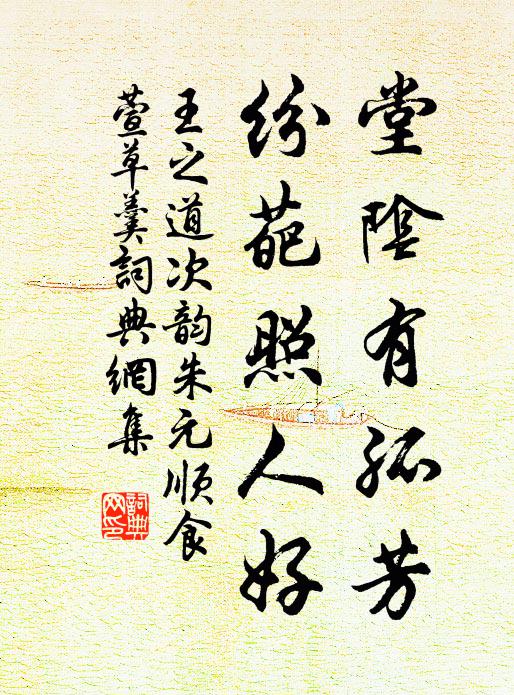 堂陰有孤芳
紛葩照人好
王之道次韵朱元順食
萱草羹詞典網集
詞典
网印